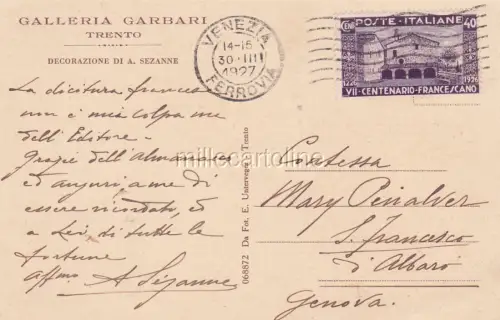 GALLERIA GARBARI
TRENTO
DECORAZIONE DI A. SEZANNE
VENEZIA
14-15
30·III
1927
FERROVIA
POSTE·ITALIANE
CENT
40
1226
1926
VII·CENTENARIO·FRANCESCANO
La dicitura francese
non è mia colpa ma
dell'Editore –
Grazie dell'almanacco
ed auguri a me di
essere ricordato, ed
a Lei, di tutte le
fortune
Aff.mo A Sézanne
068872 Da Fot. E. Unterveger - Trento
Contessa
Mary Peñalver
S. Francesco
d'Albaro
Genova.
millecartoline